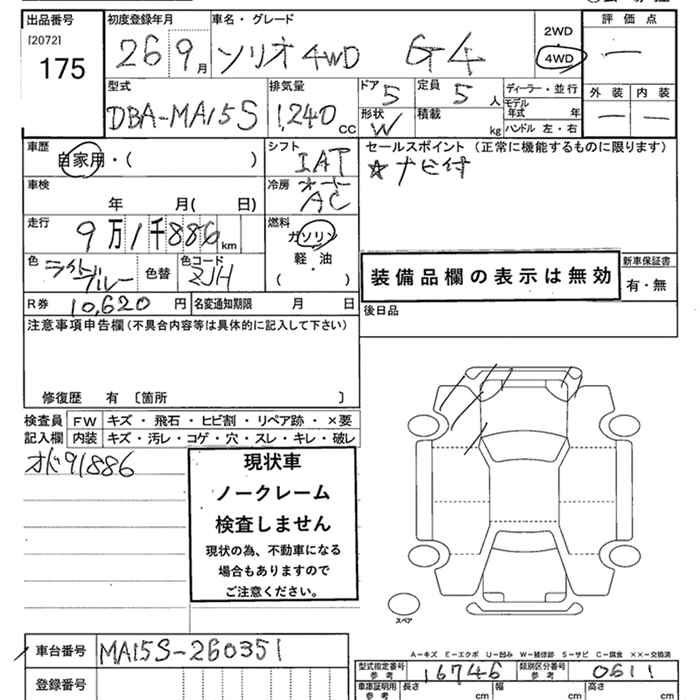 出品番号 初度登録年月 車名・グレード 2WD 評価点
[2072] 26 9月 ソリオ 4WD G4 4WD —
175
型式 排気量 ドア 定員 ディーラー・並行 外装 内装
DBA-MA15S 1,240cc 5 5人 モデル年式 年 — —
形状 W 積載 kg ハンドル 左・右
車歴 シフト セールスポイント (正常に機能するものに限ります)
自家用・( ) IAT ☆ナビ付
車検 冷房
年 月( 日) オートAC
走行 燃料
9万1千886km ガソリン
軽・油
( )
色 ライトブルー 色替 色コード ZJH
装備品欄の表示は無効 新車保証書
有・無
R券 10,620円 名変通知期限 月 日 後日品
注意事項申告欄 (不具合内容等は具体的に記入して下さい)
修復歴 有 〔箇所 〕
検査員 FW キズ・飛石・ヒビ割・リペア跡・×要
記入欄 内装 キズ・汚レ・コゲ・穴・スレ・キレ・破レ
オド91886
現状車
ノークレーム
検査しません
現状の為、不動車になる
場合もありますので
ご注意ください。
スペア
A－キズ E－エクボ U－凹み W－補修跡 S－サビ C－腐食 ××－交換済
車台番号 MA15S-260351
型式指定番号 参考 16746 類別区分番号 参考 0611
登録番号
車庫証明用 参考 長さ cm 幅 cm 高さ cm